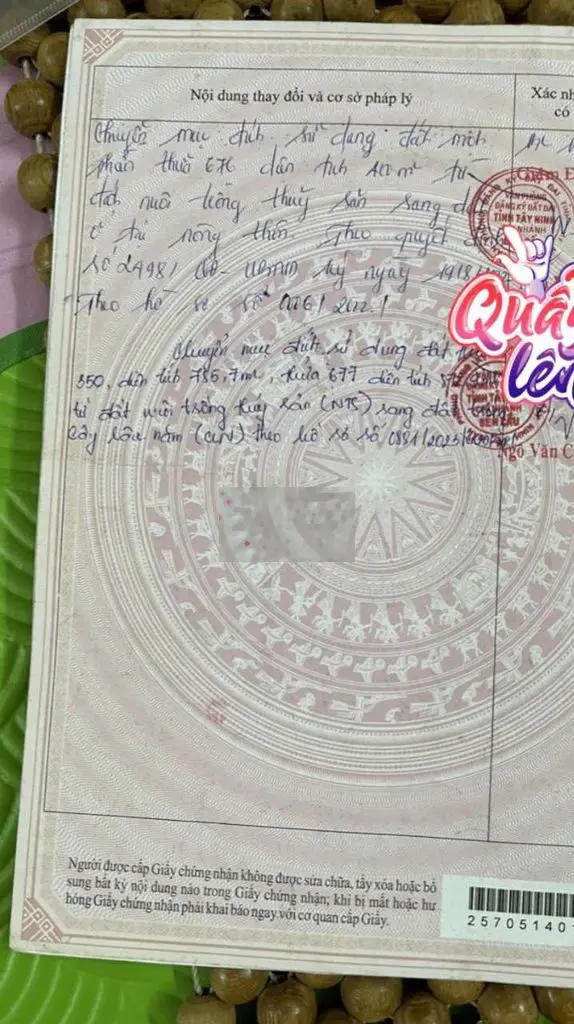 Nội dung thay đổi và cơ sở pháp lý
Xác nh
có
Chuyển mục đích sử dụng đất một
phần thửa 676 diện tích 400 m² từ
đất nuôi trồng thuỷ sản sang đ
ở tại nông thôn. Theo quyết định
số 2498/ UBND ký ngày
Theo hồ sơ số
Giám Đ
VĂN PHÒNG
ĐĂNG KÝ ĐẤT ĐAI
TỈNH TÂY NINH
NHÁNH
Quẩy
lên
Chuyển mục đích sử dụng đất
350, diện tích 785,7m², thửa 677 diện tích
từ đất nuôi trồng thủy sản (NTS) sang đất trồng
cây lâu năm (CLN) theo hồ sơ số 0881/2023/
BẾN CẦU
Ngô Văn C
Người được cấp Giấy chứng nhận không được sửa chữa, tẩy xóa hoặc bổ
sung bất kỳ nội dung nào trong Giấy chứng nhận; khi bị mất hoặc hư
hỏng Giấy chứng nhận phải khai báo ngay với cơ quan cấp Giấy.
25705140